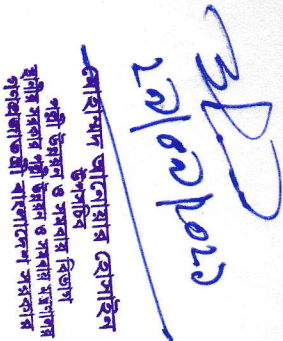 ২৯/০৯/২০২১
মোহাম্মদ আনোয়ার হোসাইন
উপসচিব
পল্লী উন্নয়ন ও সমবায় বিভাগ
স্থানীয় সরকার পল্লী উন্নয়ন ও সমবায় মন্ত্রণালয়
গণপ্রজাতন্ত্রী বাংলাদেশ সরকার